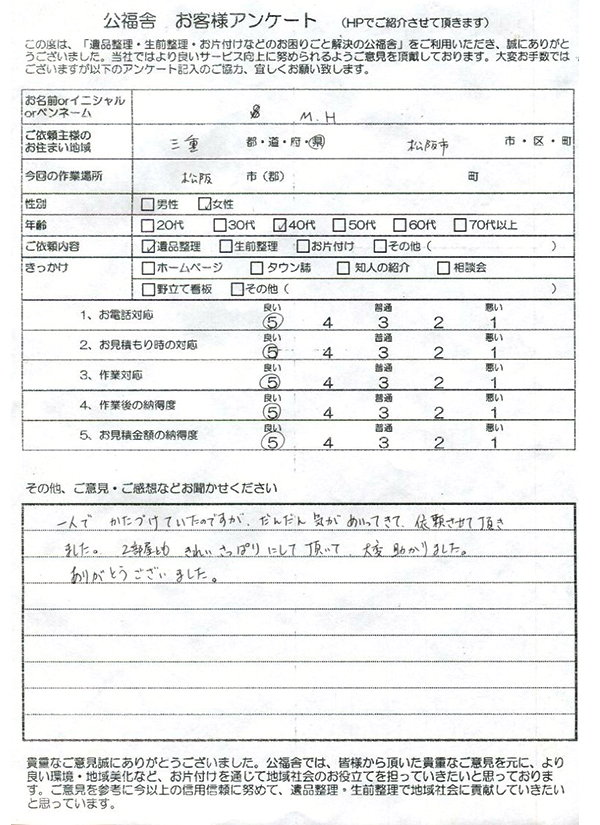 公福舎 お客様アンケート (HPでご紹介させて頂きます)
この度は、「遺品整理・生前整理・お片付けなどのお困りごと解決の公福舎」をご利用いただき、誠にありがと
うございました。当社ではより良いサービス向上に努められるようご意見を頂戴しております。大変お手数では
ございますが以下のアンケート記入のご協力、宜しくお願い致します。
お名前orイニシャル
orペンネーム M.H
ご依頼主様の
お住まい地域 三重 都・道・府・県 松阪市 市・区・町
今回の作業場所 松阪 市(郡) 町
性別 □男性 ☑女性
年齢 □20代 □30代 ☑40代 □50代 □60代 □70代以上
ご依頼内容 ☑遺品整理 □生前整理 □お片付け □その他( )
きっかけ □ホームページ □タウン誌 □知人の紹介 □相談会
□野立て看板 □その他( )
良い 普通 悪い
1、お電話対応 ⑤ 4 3 2 1
良い 普通 悪い
2、お見積もり時の対応 ⑤ 4 3 2 1
良い 普通 悪い
3、作業対応 ⑤ 4 3 2 1
良い 普通 悪い
4、作業後の納得度 ⑤ 4 3 2 1
良い 普通 悪い
5、お見積金額の納得度 ⑤ 4 3 2 1
その他、ご意見・ご感想などお聞かせください
一人で かたづけていたのですが、だんだん気が めいってきて、依頼させて頂き
ました。 2部屋とも きれい さっぱり にして 頂いて 大変 助かりました。
ありがとうございました。
貴重なご意見誠にありがとうございました。公福舎では、皆様から頂いた貴重なご意見を元に、より
良い環境・地域美化など、お片付けを通じて地域社会のお役立てを担っていきたいと思っておりま
す。ご意見を参考に今以上の信用信頼に努めて、遺品整理・生前整理で地域社会に貢献していきたい
と思っています。